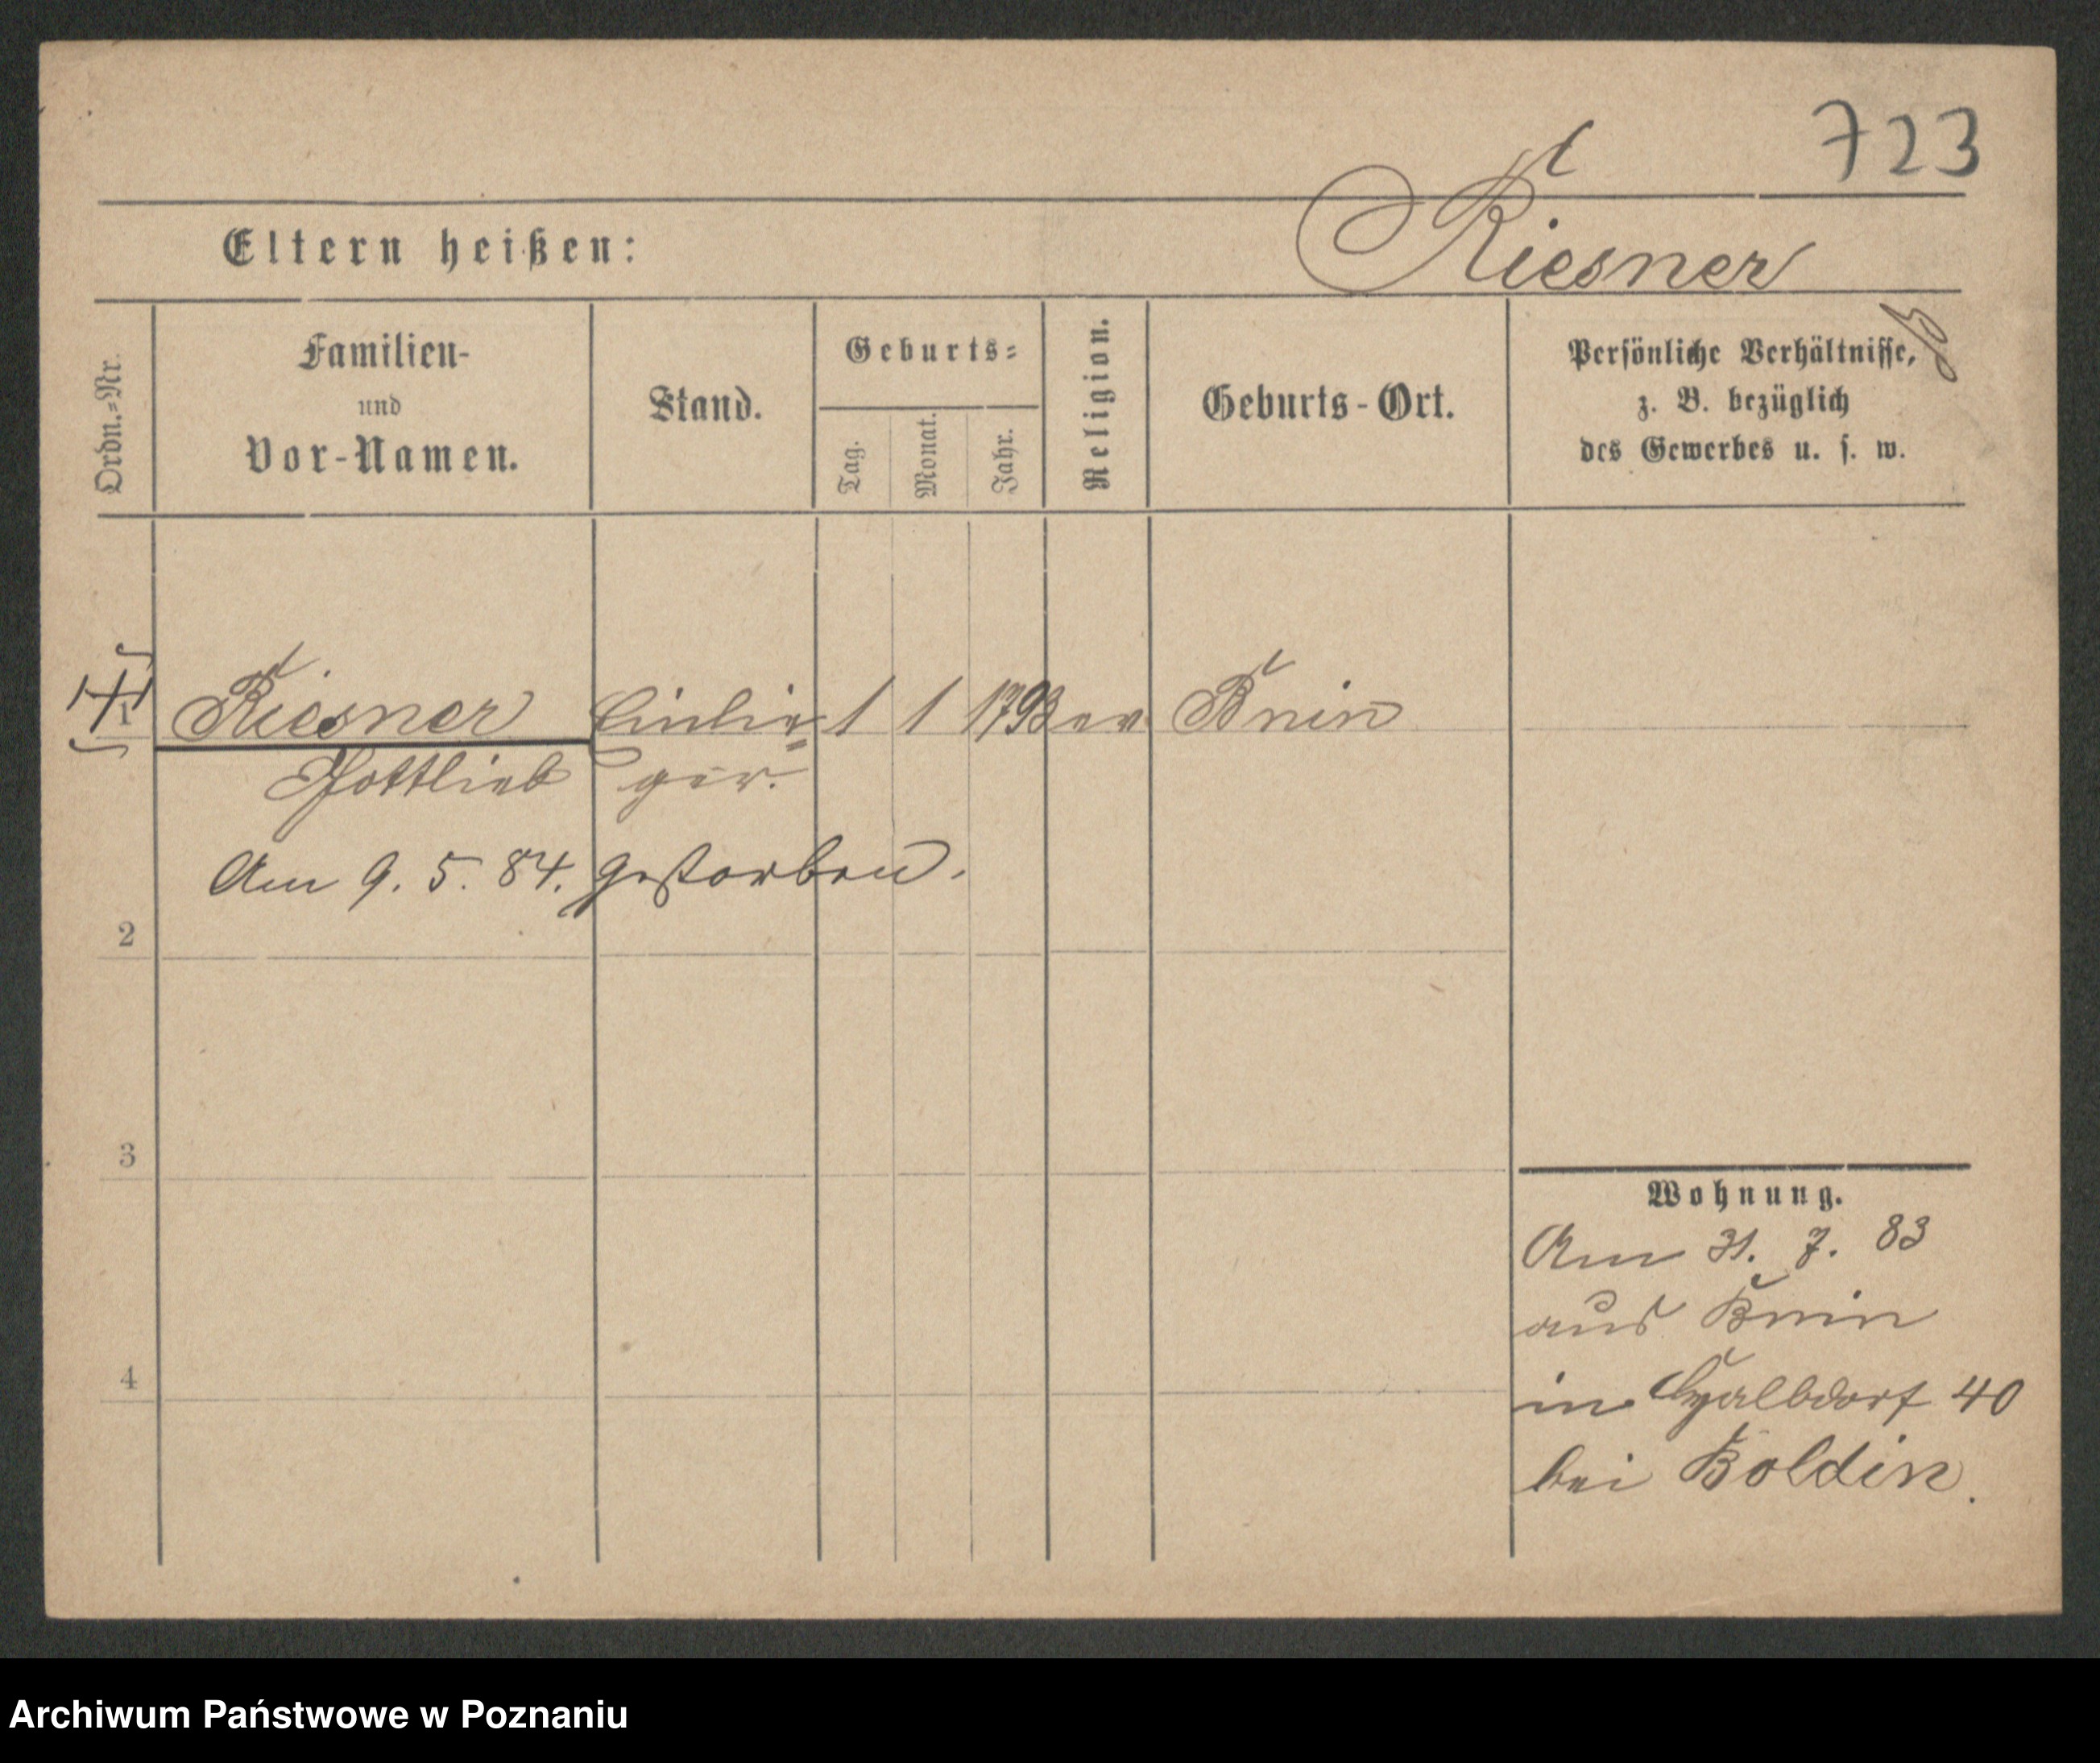 723
Riesner
Eltern heißen:
Ordn.=Nr.
Familien-
und
Vor-Namen.
Stand.
Geburts=
Tag.
Monat.
Jahr.
Religion.
Geburts-Ort.
Persönliche Verhältnisse,
z. B. bezüglich
des Gewerbes u. s. w.
1 Riesner Einlie= 1 1 1793 ev Bnin
Gottlieb ger.
Am 9. 5. 84. gestorben.
2
3
4
Wohnung.
Am 31. 7. 83
aus Bnin
in 40
bei Boldin.
Archiwum Państwowe w Poznaniu